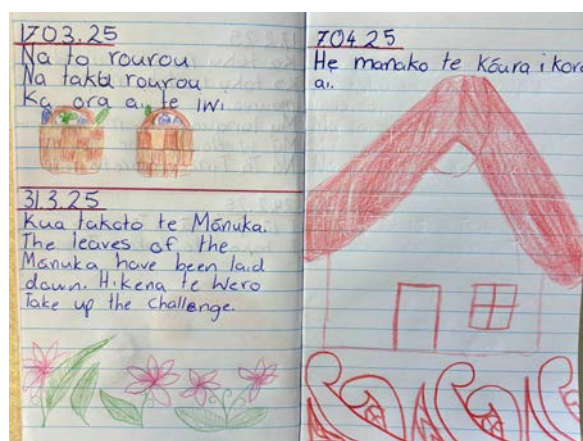 17.03.25
Na to rourou
Na taku rourou
Ka ora ai te iwi.
31.3.25
Kua takoto te Mānuka.
The leaves of the
Mānuka have been laid
down. Hikena te Wero
Take up the challenge.
7.04.25
He manako te kōura i kore
ai.